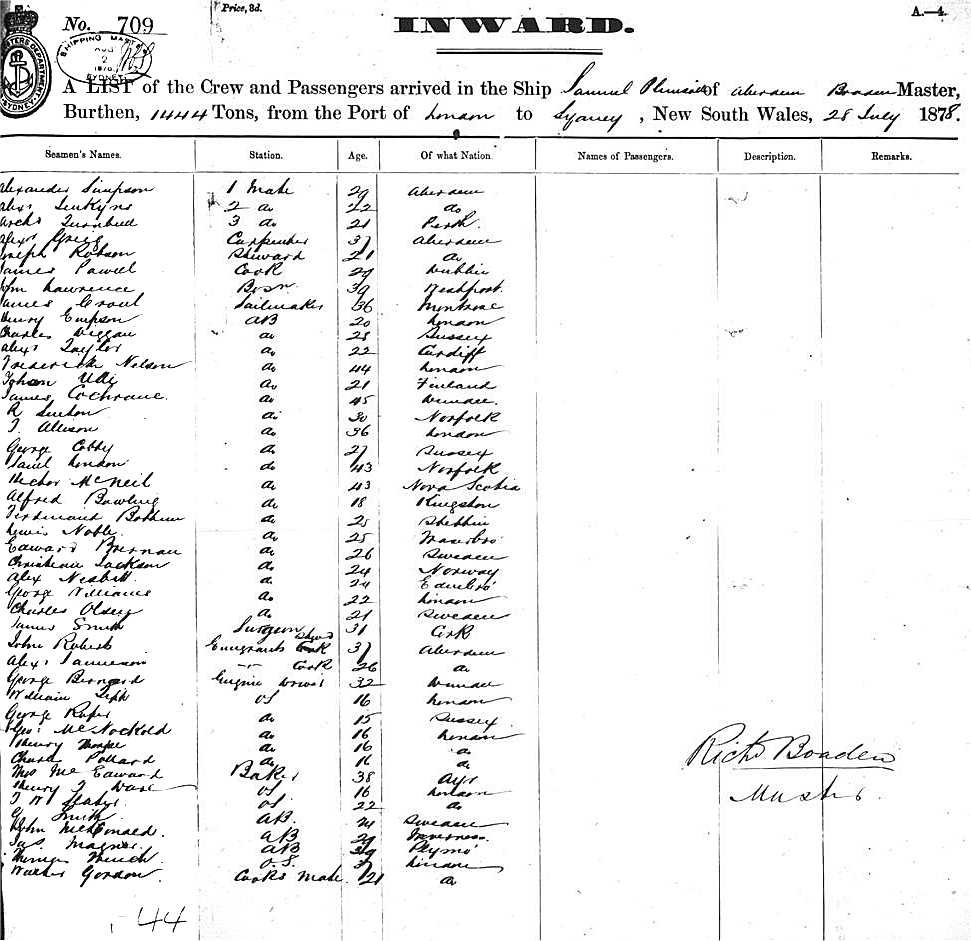 Price, 3d.
A.—4.
No. 709
INWARD.
SHIPPING MASTER'S
AUG
2
1878
SYDNEY
A LIST of the Crew and Passengers arrived in the Ship Samuel Plimsoll of Aberdeen Boaden Master,
Burthen, 1444 Tons, from the Port of London to Sydney, New South Wales, 28 July 1878.
Seamen's Names. Station. Age. Of what Nation. Names of Passengers. Description. Remarks.
Alexander Simpson 1 Mate 29 Aberdeen
Alexr 2 do 22 do
Archd Turnbull 3 do 21 Perth
Alexr Gregg Carpenter 37 Aberdeen
Joseph Robson Steward 21 do
James Powell Cook 29 Dublin
John Lawrence Bosn 39
James Croul Sailmaker 36 Montrose
Henry Empson AB 20 London
Charles Diggau do 28 Sussex
Alexr Taylor do 22 Cardiff
Frederick Nelson do 44 London
Johan do 21 Finland
James Cochrane do 45 Dundee
R do 30 Norfolk
J. Allison do 36 London
George Cobby do 27 Sussex
Saml London do 43 Norfolk
Hector McNeil do 43 Nova Scotia
Alfred Bowling do 18 Kingston
Ferdinand do 25 Stettin
Lewis Noble do 25 Fraserbro
Edward Brennan do 26 Sweden
Christian Jackson do 24 Norway
Alex Nesbitt do 24 Edinbro
George Williams do 22 London
Charles Olsen do 21 Sweden
James Smith Surgeon 31 Cork
John Roberts Emigrants Cook 37 Aberdeen
Alexr Jamieson Cook 26 do
George Bernard Engine Driver 32 Dundee
William OS 16 London
George Roper do 15 Sussex
McNockold do 16 London
Henry Thorpe do 16 do
Chard Pollard do 16 do
Thos Mc Edward Baker 38 Ayr
Henry J Ware OS 16 London
J W Slater OS. 22 do
G Smith AB. 24 Sweden
John McDonald. AB 29 Inverness
Jas. Magner AB 39 Plymo
Thomas O.S. 37 London
Walter Gordon. Cooks Mate. 21 do
Richd Boaden
Master
44